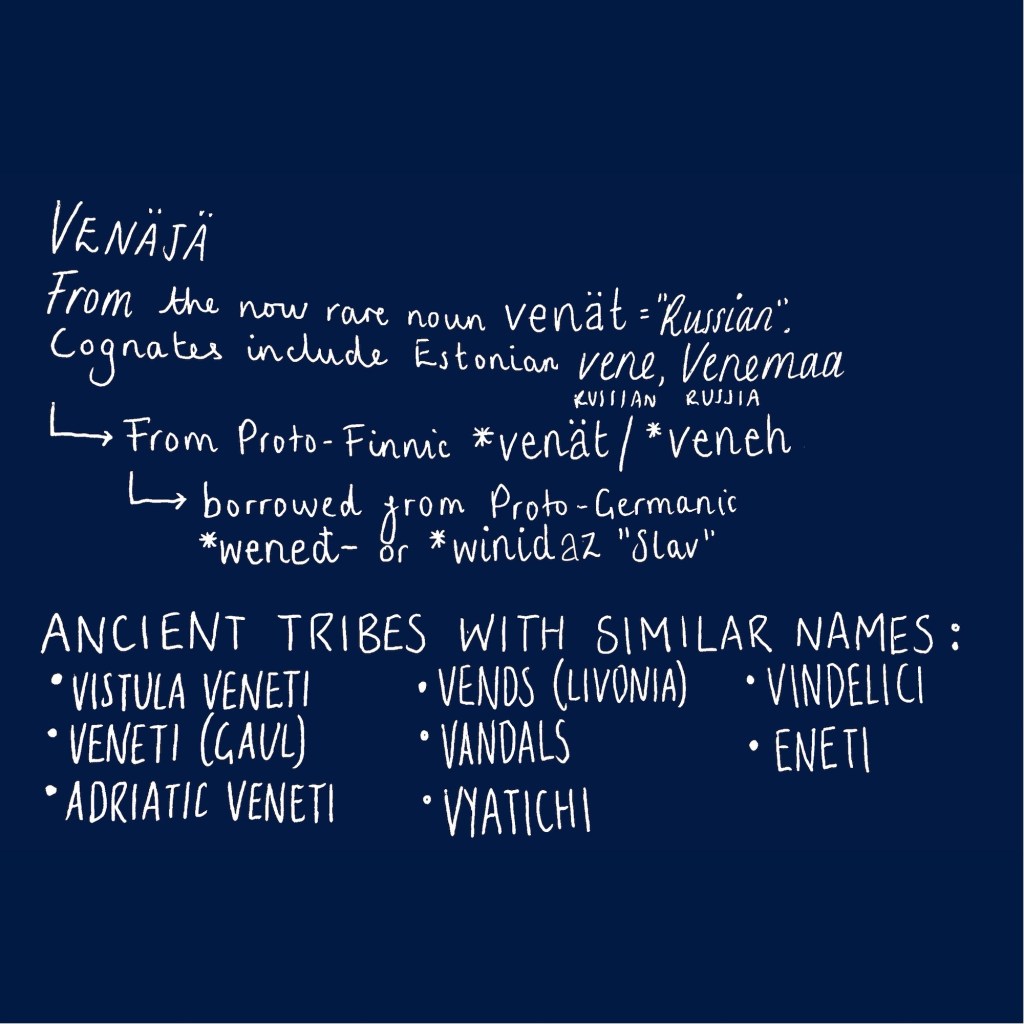 VENÄJÄ
From the now rare noun venät = "Russian".
Cognates include Estonian vene, Venemaa
RUSSIAN RUSSIA
From Proto-Finnic *venät / *veneh
borrowed from Proto-Germanic
*weneđ- or *winidaz "Slav"
ANCIENT TRIBES WITH SIMILAR NAMES:
• VISTULA VENETI • VENDS (LIVONIA) • VINDELICI
• VENETI (GAUL) • VANDALS • ENETI
• ADRIATIC VENETI • VYATICHI